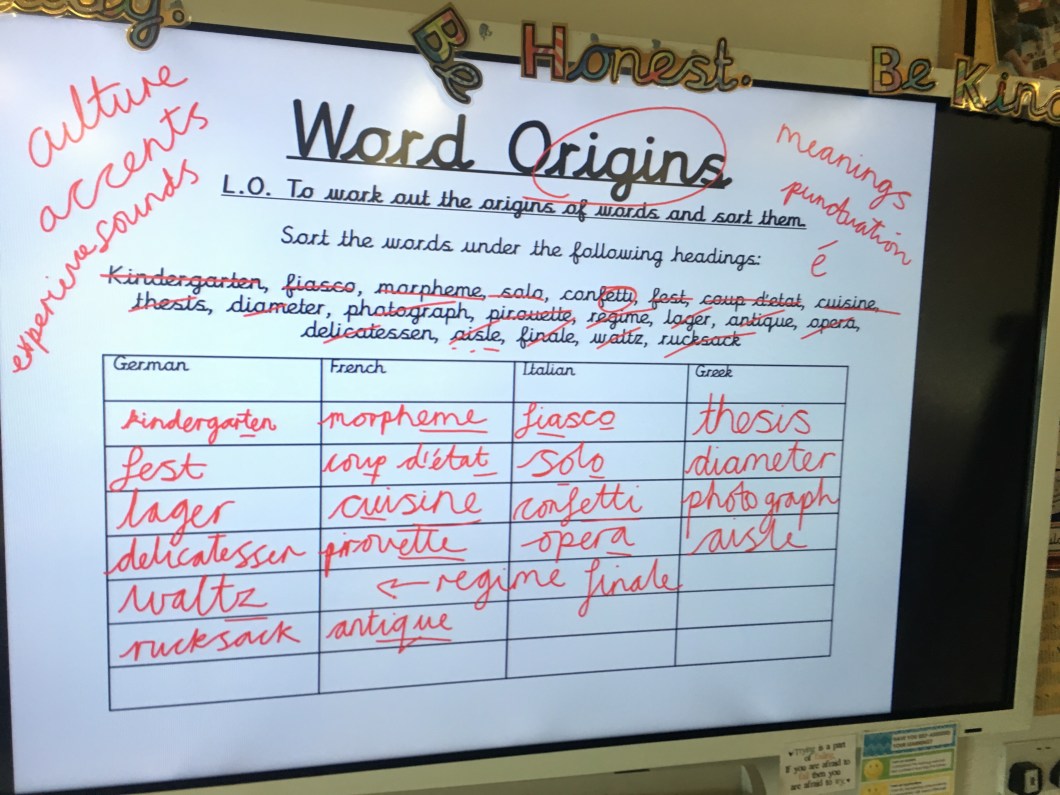 Be Honest. Be Kind
culture
accents
sounds
meanings
punctuation
é
Word Origins
L.O. To work out the origins of words and sort them.
Sort the words under the following headings:
Kindergarten, fiasco, morpheme, solo, confetti, fest, coup d'etat, cuisine,
thesis, diameter, photograph, pirouette, regime, lager, antique, opera,
delicatessen, aisle, finale, waltz, rucksack
German French Italian Greek
kindergarten morpheme fiasco thesis
fest coup d'état solo diameter
lager cuisine confetti photograph
delicatessen pirouette opera aisle
waltz ← regime finale
rucksack antique
Trying is a part
of
If you are afraid to
then you
are afraid to try.